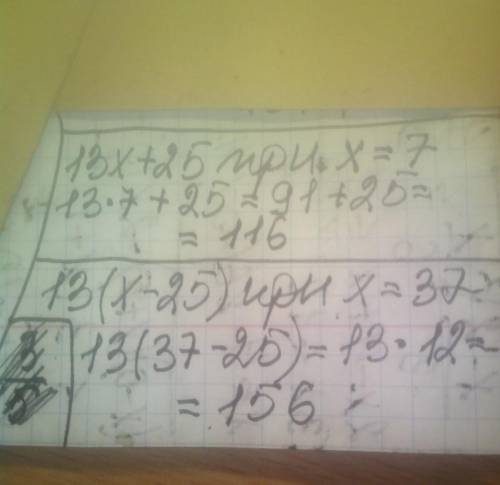 13x+25 при x=7
13·7+25=91+25=
=116
13(x-25) при x=37
13(37-25)=13·12=
=156